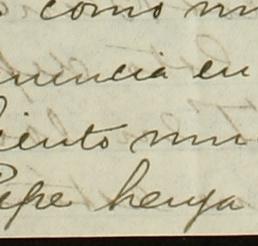 como mu
nuncia en
iento mu
Pepe henya